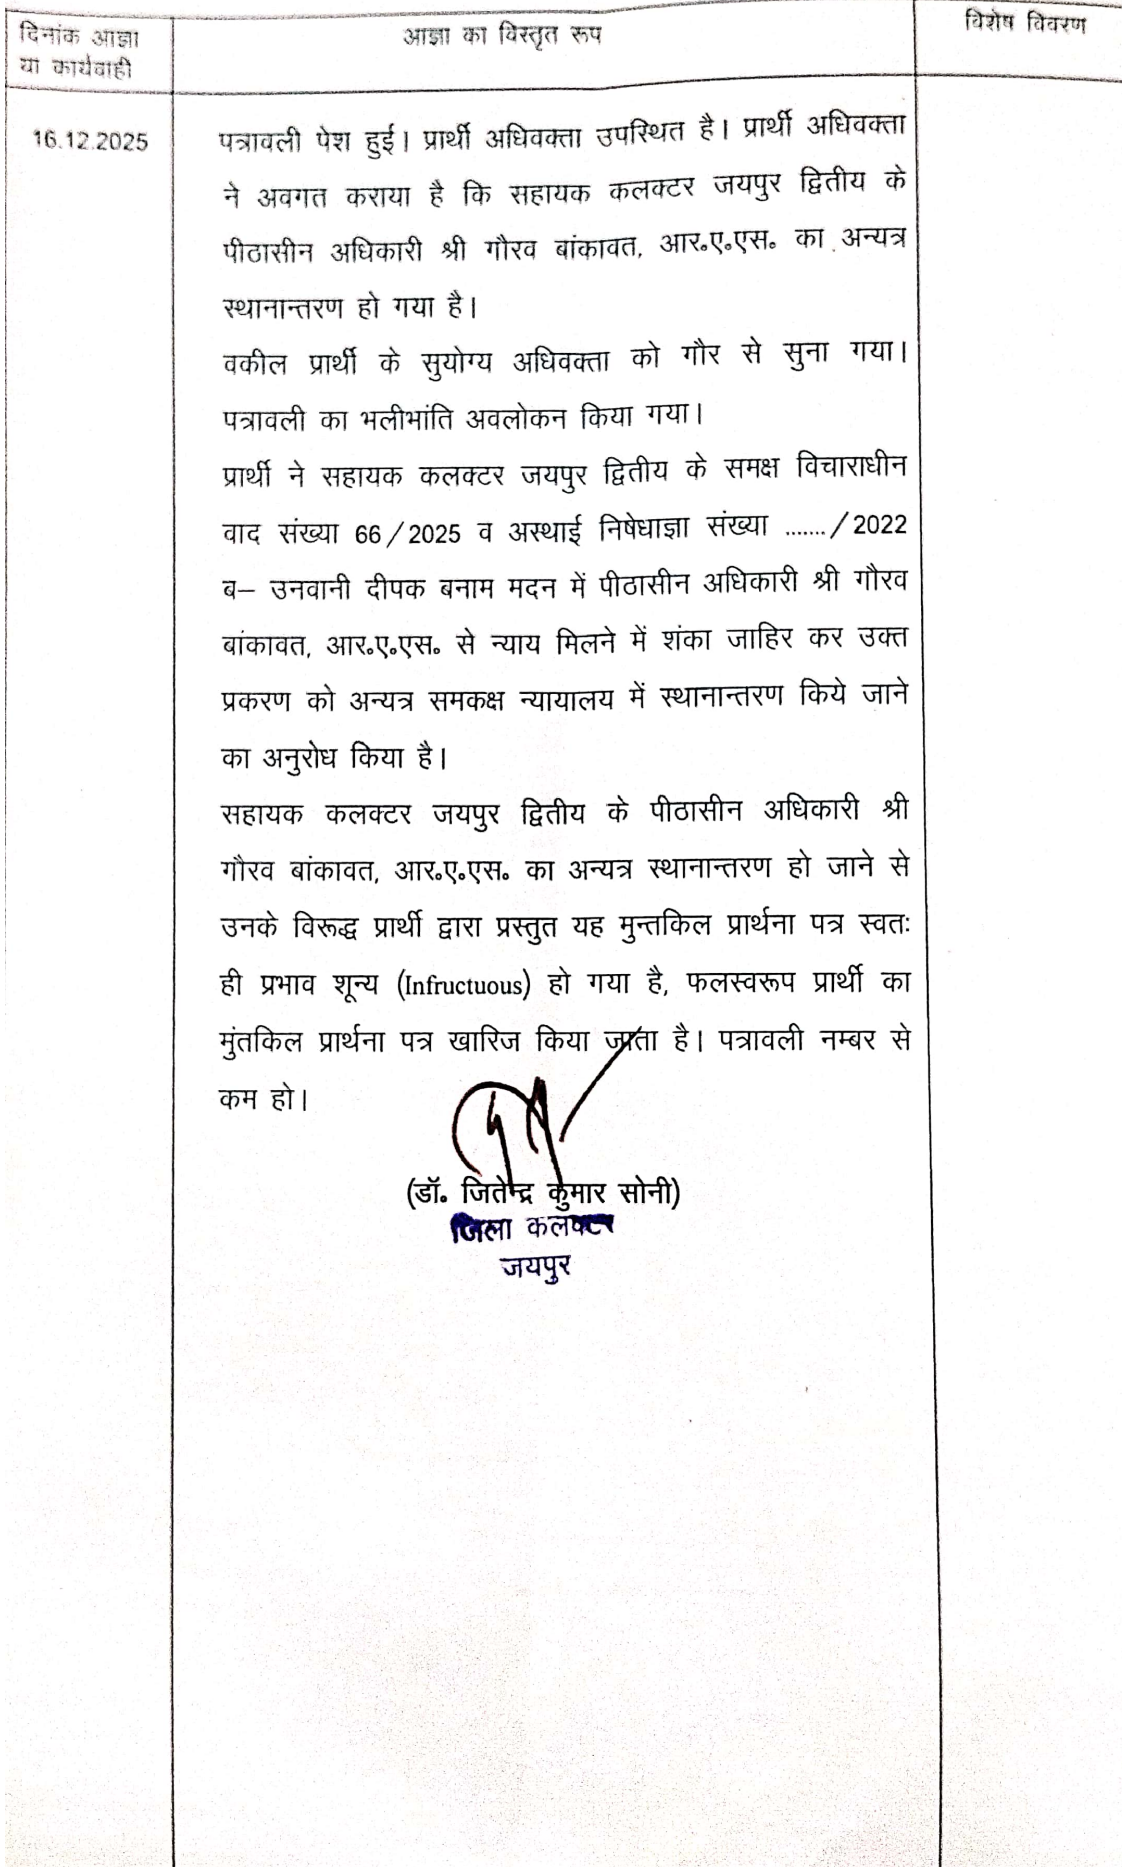 दिनांक आज्ञा
या कार्यवाही
आज्ञा का विस्तृत रूप
विशेष विवरण
16.12.2025
पत्रावली पेश हुई। प्रार्थी अधिवक्ता उपस्थित है। प्रार्थी अधिवक्ता
ने अवगत कराया है कि सहायक कलक्टर जयपुर द्वितीय के
पीठासीन अधिकारी श्री गौरव बांकावत, आर०ए०एस० का अन्यत्र
स्थानान्तरण हो गया है।
वकील प्रार्थी के सुयोग्य अधिवक्ता को गौर से सुना गया।
पत्रावली का भलीभांति अवलोकन किया गया।
प्रार्थी ने सहायक कलक्टर जयपुर द्वितीय के समक्ष विचाराधीन
वाद संख्या 66/2025 व अस्थाई निषेधाज्ञा संख्या ......./2022
ब– उनवानी दीपक बनाम मदन में पीठासीन अधिकारी श्री गौरव
बांकावत, आर०ए०एस० से न्याय मिलने में शंका जाहिर कर उक्त
प्रकरण को अन्यत्र समकक्ष न्यायालय में स्थानान्तरण किये जाने
का अनुरोध किया है।
सहायक कलक्टर जयपुर द्वितीय के पीठासीन अधिकारी श्री
गौरव बांकावत, आर०ए०एस० का अन्यत्र स्थानान्तरण हो जाने से
उनके विरूद्ध प्रार्थी द्वारा प्रस्तुत यह मुन्तकिल प्रार्थना पत्र स्वतः
ही प्रभाव शून्य (Infructuous) हो गया है, फलस्वरूप प्रार्थी का
मुंतकिल प्रार्थना पत्र खारिज किया जाता है। पत्रावली नम्बर से
कम हो।
(डॉ० जितेन्द्र कुमार सोनी)
जिला कलक्टर
जयपुर